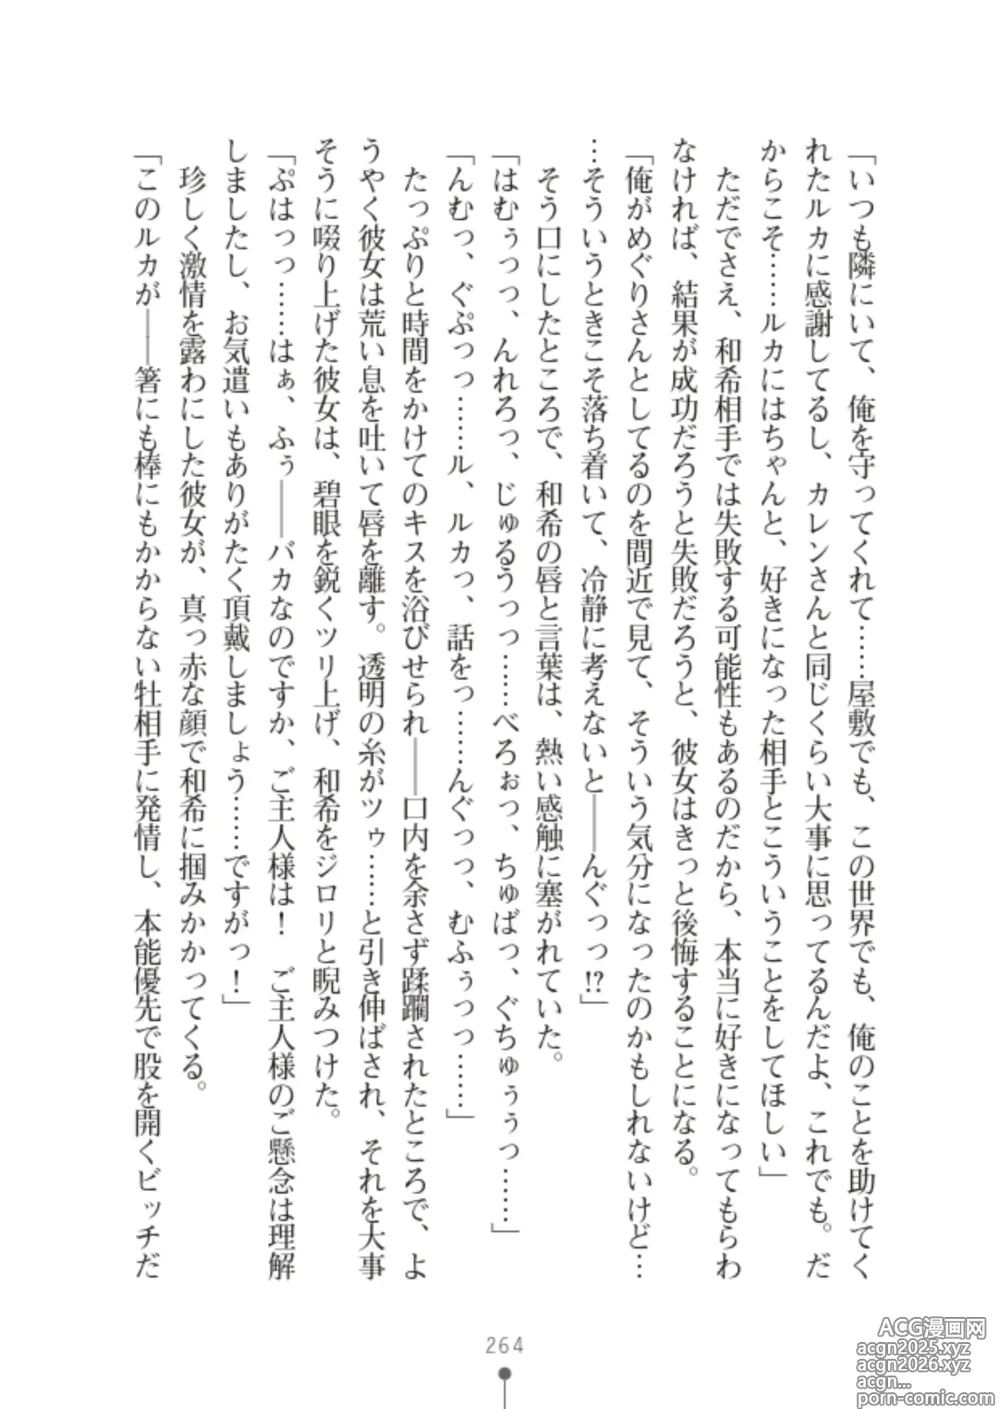 「いつも隣にいて、俺を守ってくれて……屋敷でも、この世界でも、俺のことを助けてく
れたルカに感謝してるし、カレンさんと同じくらい大事に思ってるんだよ、これでも。だ
からこそ……ルカにはちゃんと、好きになった相手とこういうことをしてほしい」
ただでさえ、和希相手では失敗する可能性もあるのだから、本当に好きになってもらわ
なければ、結果が成功だろうと失敗だろうと、彼女はきっと後悔することになる。
「俺がめぐりさんとしてるのを間近で見て、そういう気分になったのかもしれないけど…
…そういうときこそ落ち着いて、冷静に考えないと――んぐっっ!?」
そう口にしたところで、和希の唇と言葉は、熱い感触に塞がれていた。
「はむぅっっ、んれろっ、じゅるうっっ……べろぉっ、ちゅばっ、ぐちゅぅぅっ……」
「んむっ、ぐぷっっ……ル、ルカっ、話をっ……んぐっっ、むふぅっっ……」
たっぷりと時間をかけてのキスを浴びせられ――口内を余さず蹂躙されたところで、よ
うやく彼女は荒い息を吐いて唇を離す。透明の糸がツゥ……と引き伸ばされ、それを大事
そうに啜り上げた彼女は、碧眼を鋭くツリ上げ、和希をジロリと睨みつけた。
「ぷはっっ……はぁ、ふぅ――バカなのですか、ご主人様は！　ご主人様のご懸念は理解
しましたし、お気遣いもありがたく頂戴しましょう……ですがっ！」
珍しく激情を露わにした彼女が、真っ赤な顔で和希に掴みかかってくる。
「このルカが――箸にも棒にもかからない牡相手に発情し、本能優先で股を開くビッチだ
264
ACG漫画网
acgn2025.xyz
acgn2026.xyz
acgn...
porn-comic.com